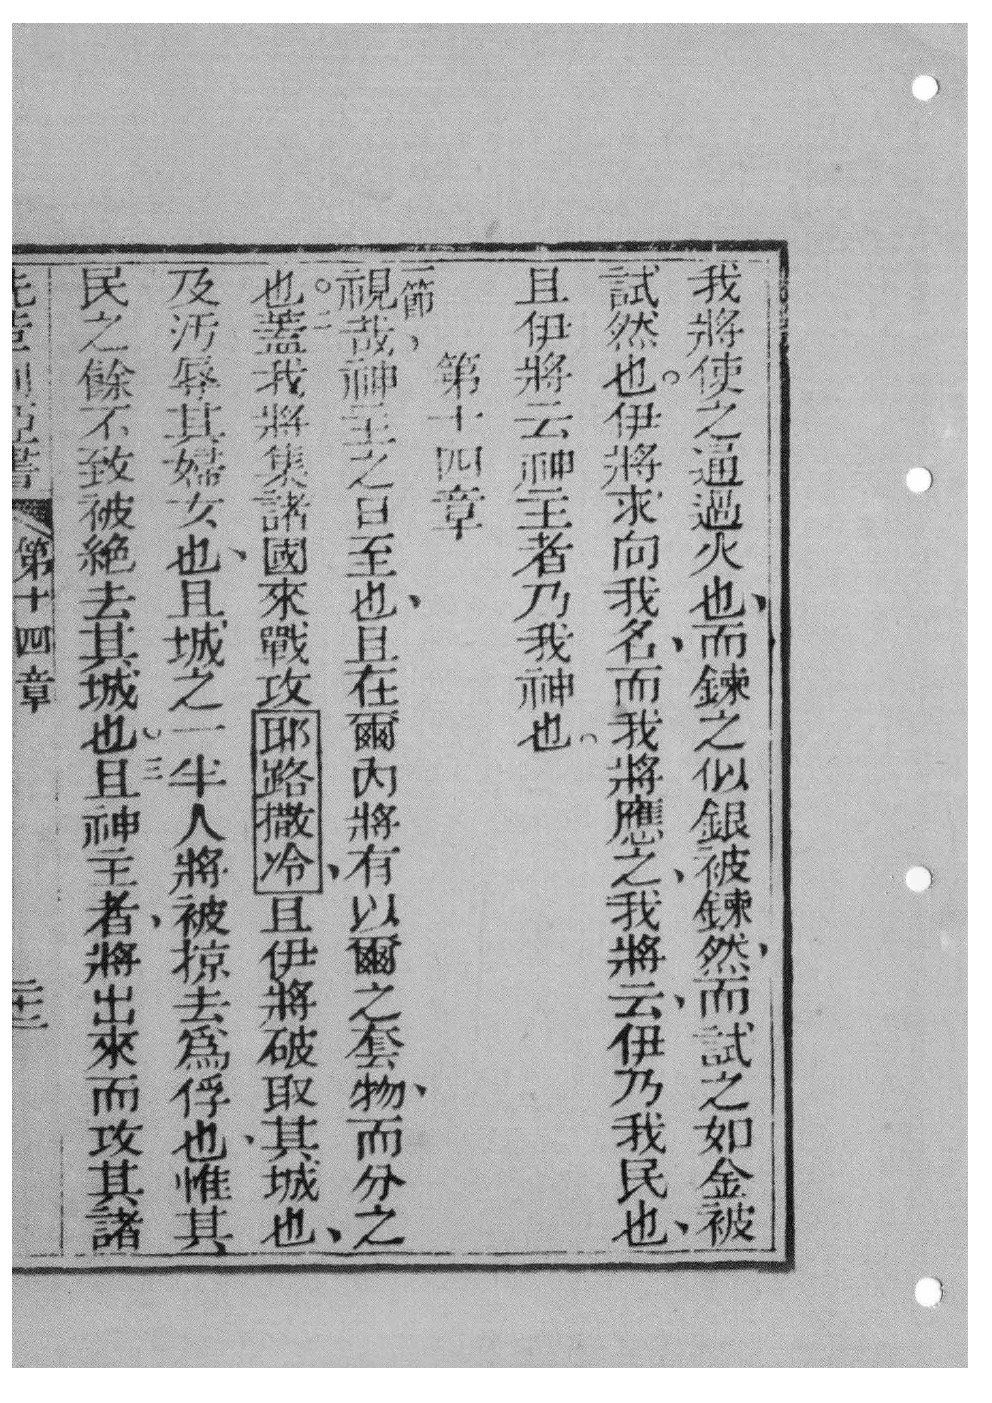 我將使之逼過火也、而鍊之似銀被鍊然、而試之如金被
試然也。伊將求向我名、而我將應之、我將云、伊乃我民也、
且伊將云神主者乃我神也。
第十四章
一節、視哉神主之日至也、且在爾內將有以爾之套物、而分之
也。二蓋我將集諸國來戰攻耶路撒冷、且伊將破取其城也、
及污辱其婦女也、且城之一半人將被掠去爲俘也、惟其
民之餘不致被絕去其城也。三且神主者、將出來而攻其諸
書 第十四章